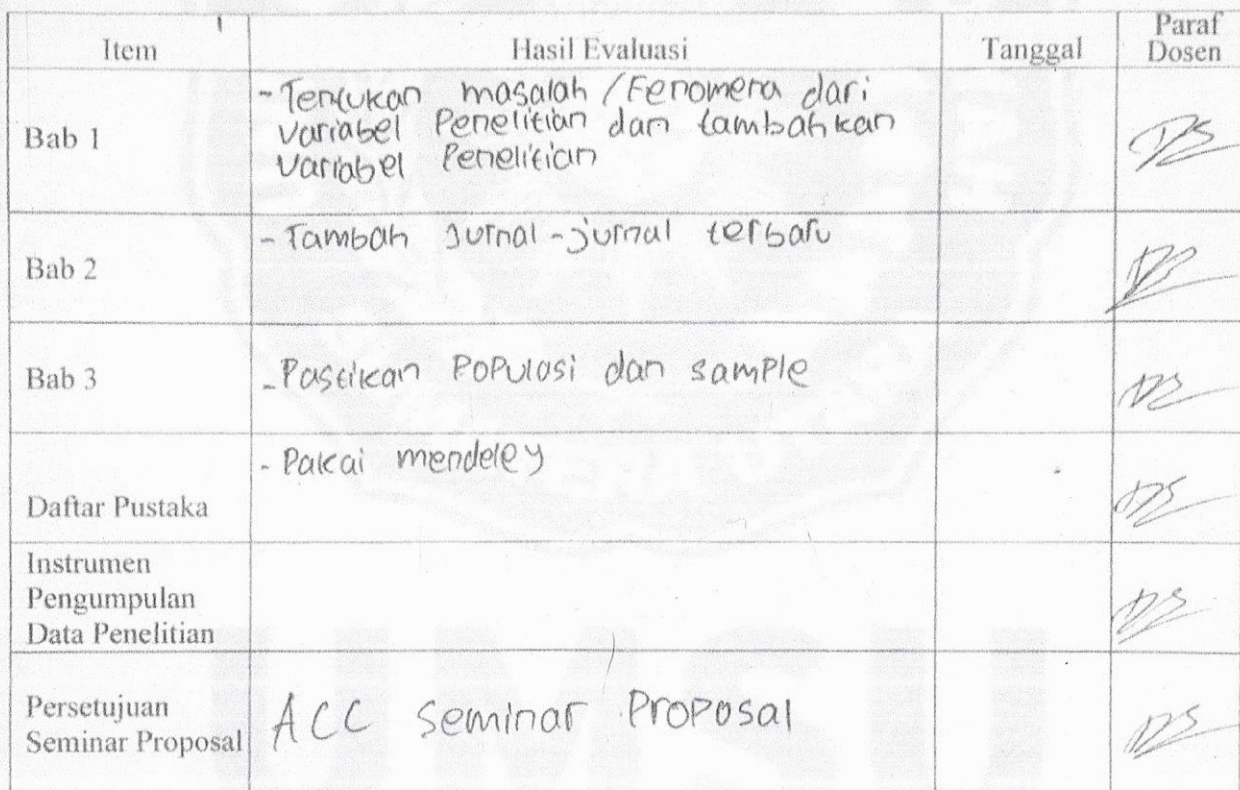 Item Hasil Evaluasi Tanggal Paraf
Dosen
Bab 1
- Tentukan masalah / Fenomena dari
variabel Penelitian dan tambahkan
variabel Penelitian
Bab 2
- Tambah Jurnal - jurnal terbaru
Bab 3
- Pastikan Populasi dan sample
Daftar Pustaka
- Pakai mendeley
Instrumen
Pengumpulan
Data Penelitian
Persetujuan
Seminar Proposal
ACC Seminar Proposal
UMSU